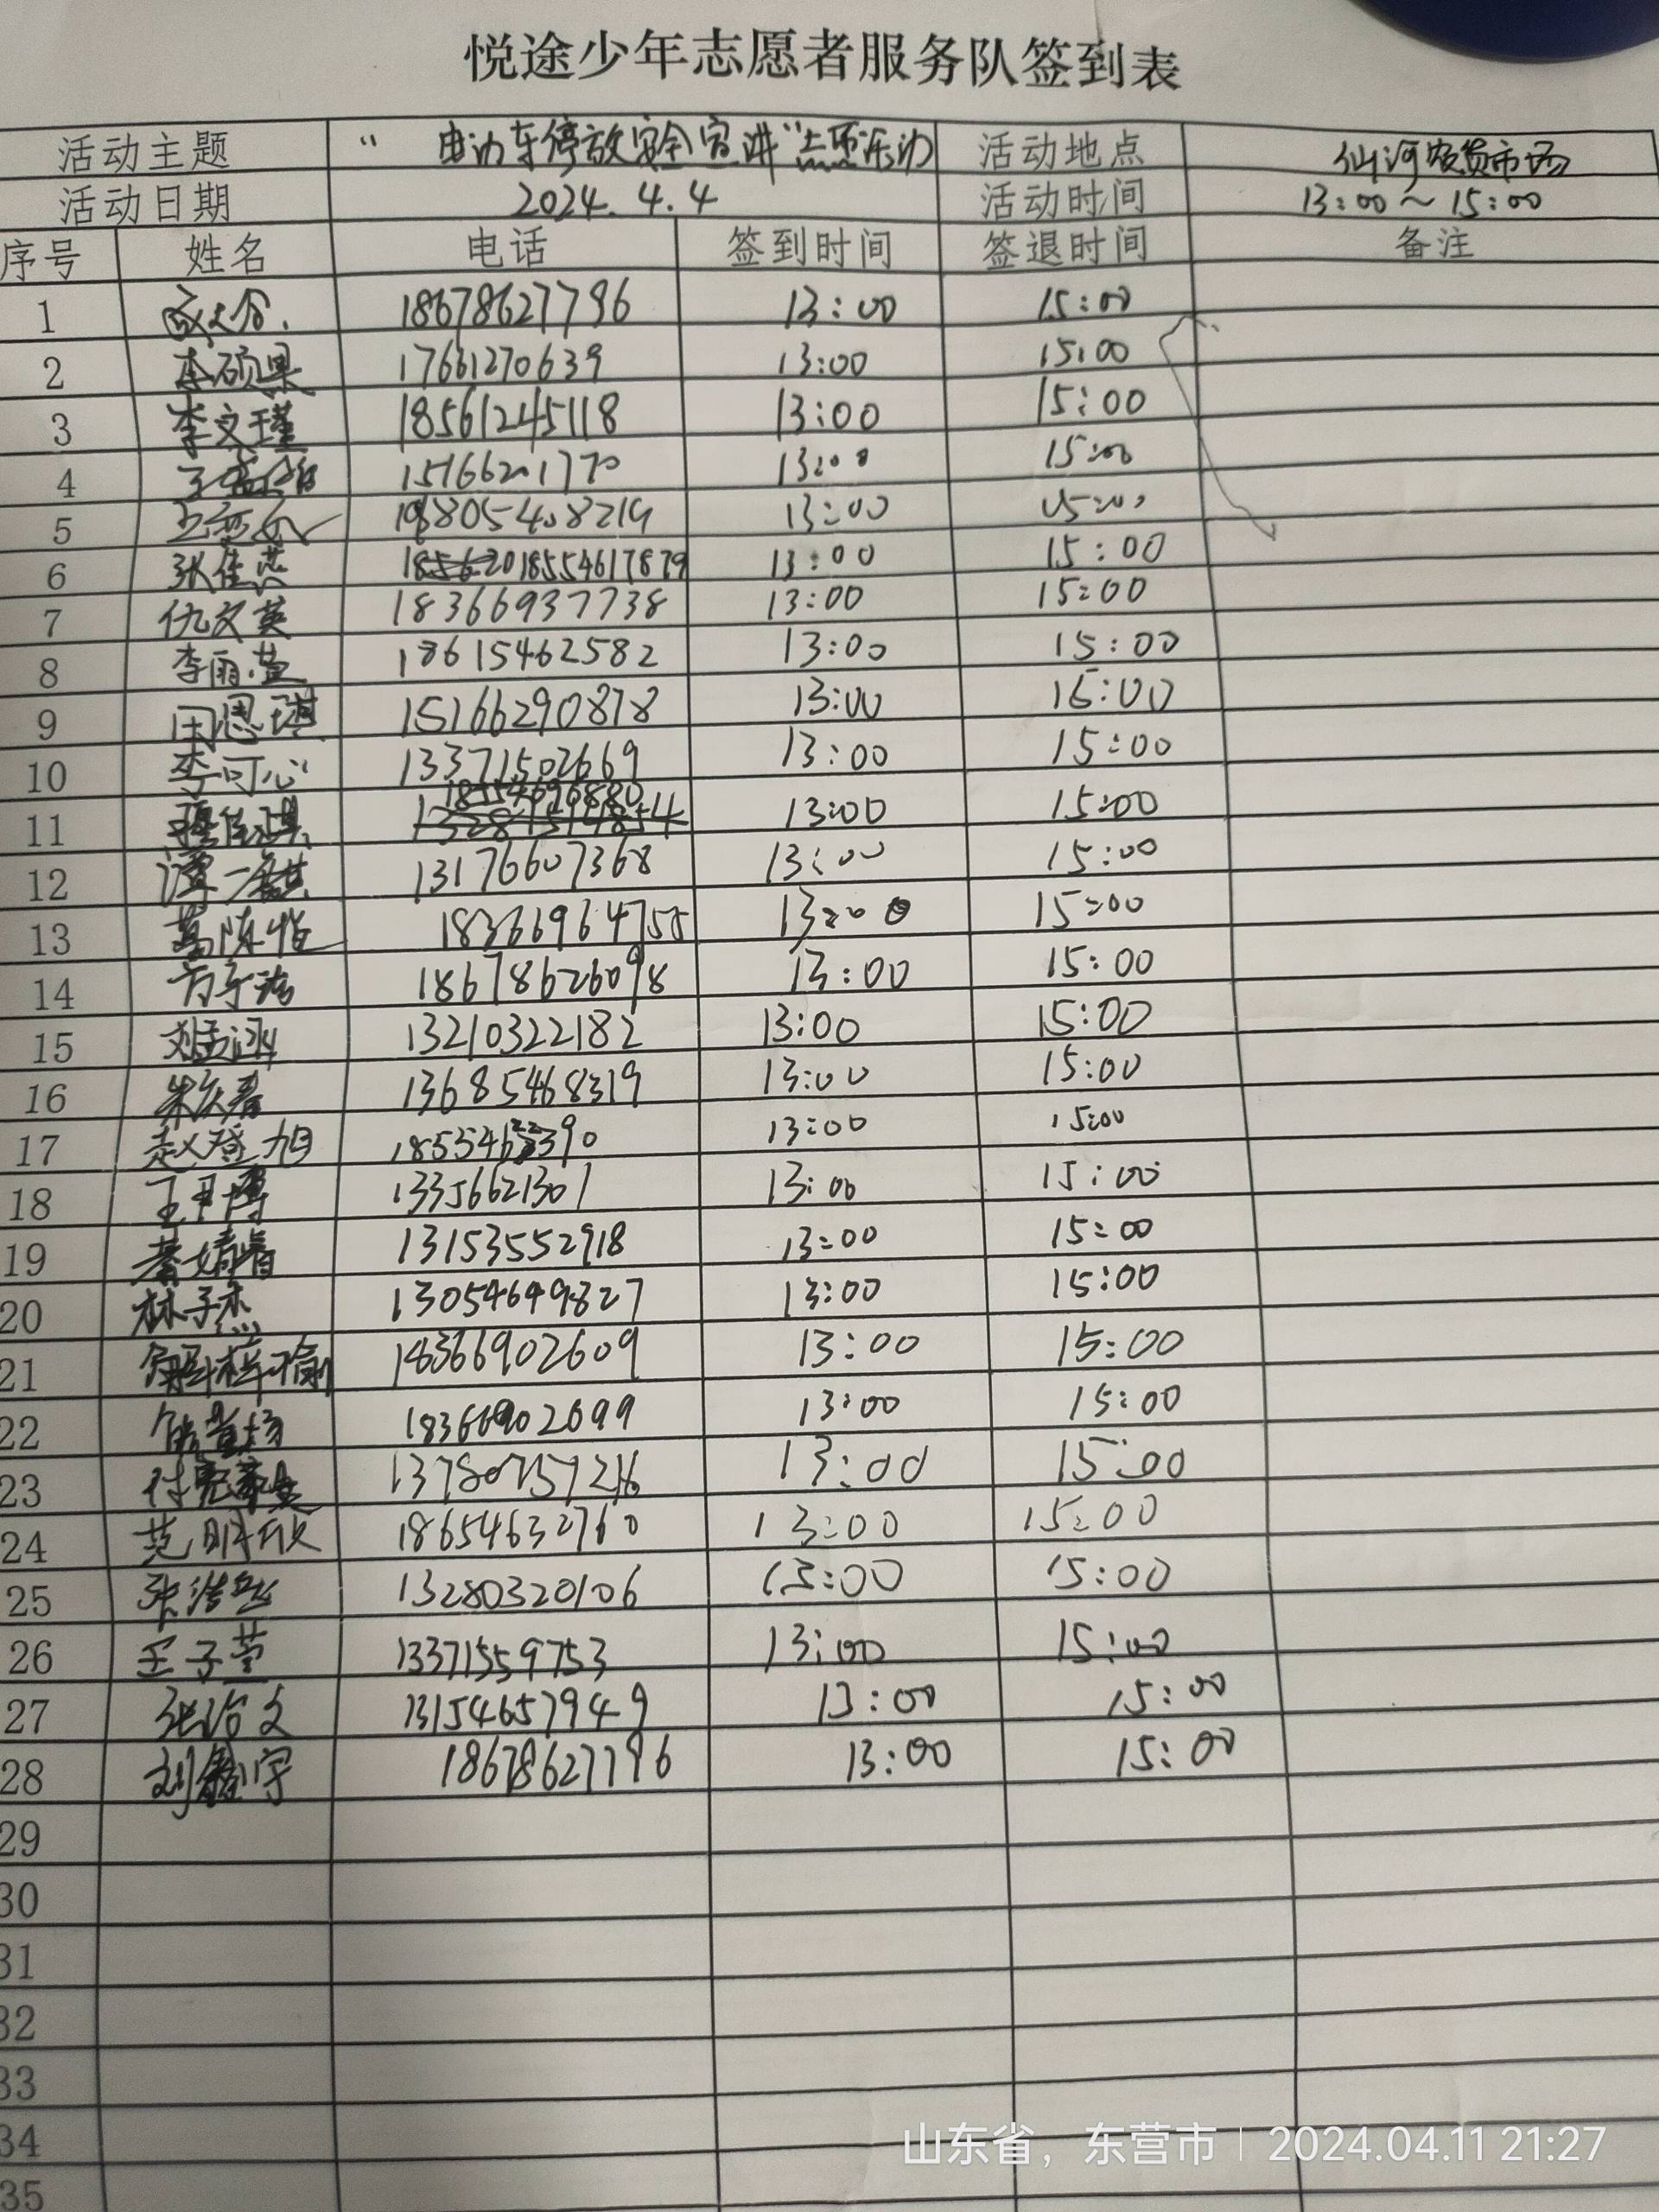 悦途少年志愿者服务队签到表
活动主题 “ 电动车停放安全宣讲”志愿活动 活动地点 仙河农贸市场
活动日期 2024.4.4 活动时间 13:00～15:00
序号 姓名 电话 签到时间 签退时间 备注
1 18678627796 13:00 15:00
2 李硕果 17661270639 13:00 15:00
3 李文瑾 18561245118 13:00 15:00
4 15166201770 13:00 15:00
5 13:00 15:00
6 张佳 18554617879 13:00 15:00
7 仇文英 18366937738 13:00 15:00
8 李雨 18615462582 13:00 15:00
9 田思琪 15166290878 13:00 15:00
10 李可心 13371502669 13:00 15:00
11 18554696880 13:00 15:00
12 谭一 13176607368 13:00 15:00
13 葛陈怡 18366964755 13:00 15:00
14 方宇 18678626098 13:00 15:00
15 刘孟涵 13210322182 13:00 15:00
16 朱庆春 13685468319 13:00 15:00
17 赵登旭 13:00 15:00
18 王 13356621301 13:00 15:00
19 黄婧睿 13153552918 13:00 15:00
20 林子杰 13054649827 13:00 15:00
21 解梓愉 18366902609 13:00 15:00
22 18366902699 13:00 15:00
23 付 13780757216 13:00 15:00
24 范明欣 18654632760 13:00 15:00
25 张浩 13280320106 13:00 15:00
26 王子萱 13371559753 13:00 15:00
27 张治文 13154657949 13:00 15:00
28 刘鑫宇 18678627796 13:00 15:00
29
30
31
32
33
34
35
山东省，东营市 | 2024.04.11 21:27